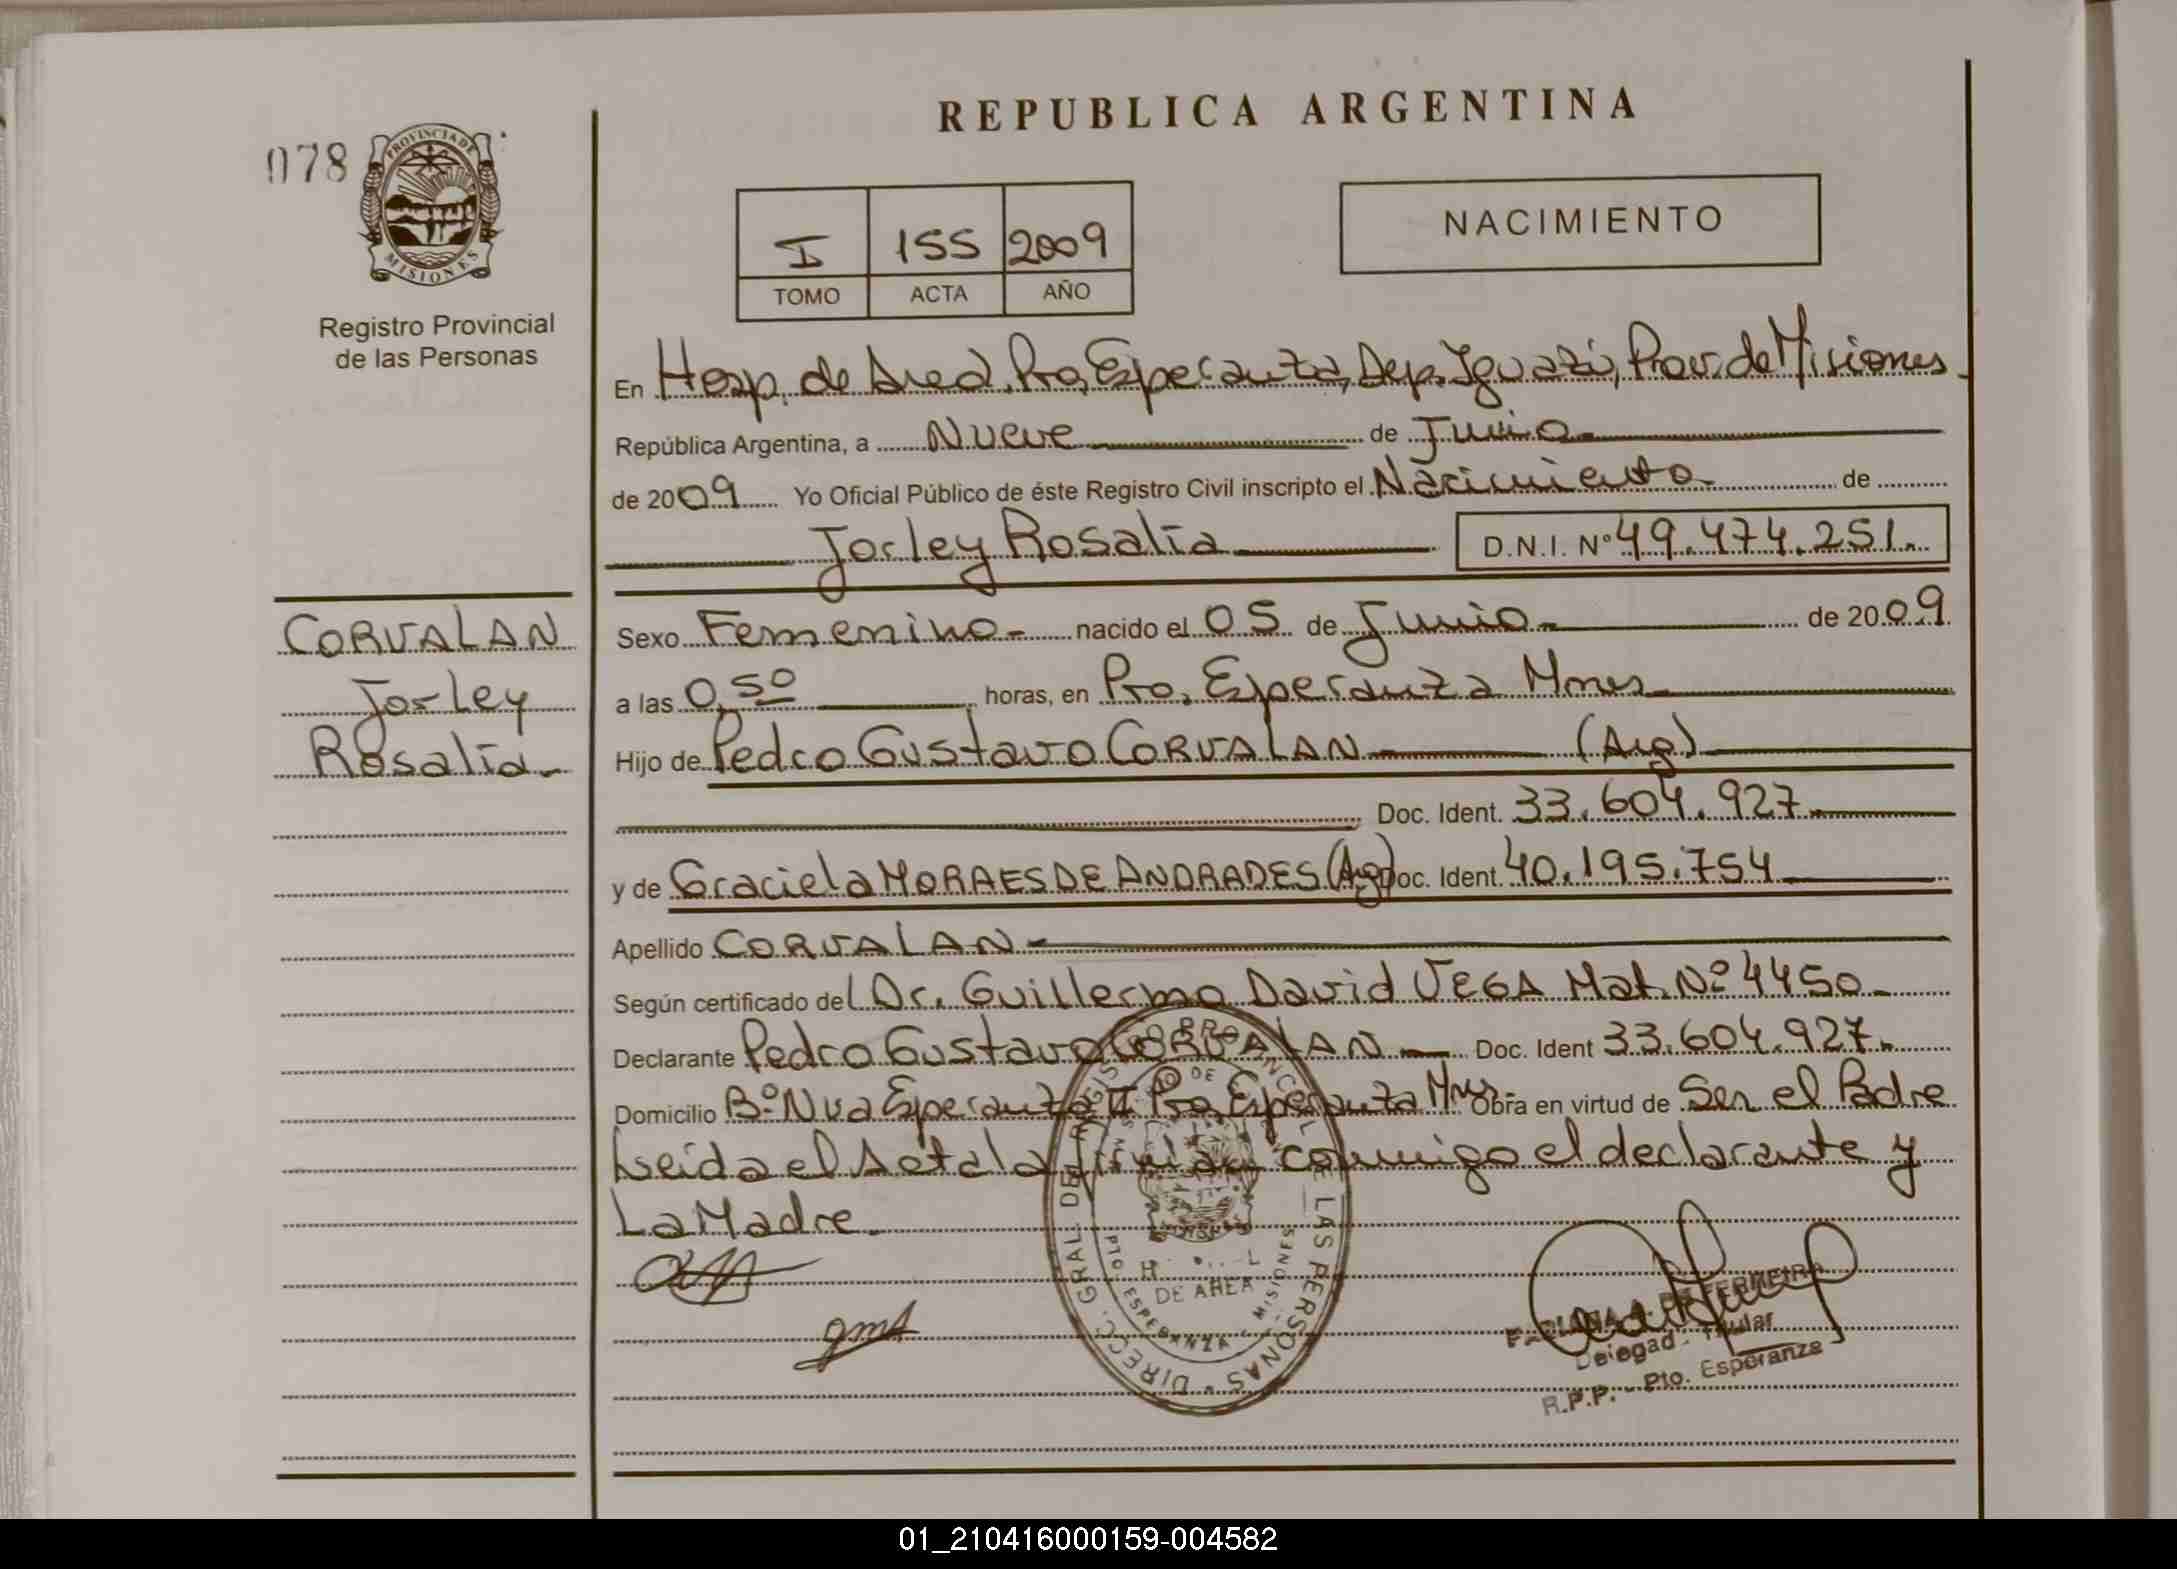 REPUBLICA ARGENTINA
078
PROVINCIA DE
MISIONES
Registro Provincial
de las Personas
I 155 2009
TOMO ACTA AÑO
NACIMIENTO
En Hosp. de Area, Pto, Esperanza, Dep. Iguazú, Prov. de Misiones
República Argentina, a Nueve de Junio
de 2009 Yo Oficial Público de éste Registro Civil inscripto el Nacimiento de
Jorley Rosalia D.N.I. Nº 49.474.251.
CORVALAN
Jorley
Rosalia
Sexo Femenino nacido el 05 de Junio de 2009
a las 0,50 horas, en Pto. Esperanza Mnes
Hijo de Pedro Gustavo CORVALAN (Arg)
Doc. Ident. 33.604.927
y de Graciela MORAES DE ANDRADES (Arg) Doc. Ident. 40.195.754
Apellido CORVALAN
Según certificado del Dr. Guillermo David VEGA Mat. Nº 4450
Declarante Pedro Gustavo CORVALAN Doc. Ident 33.604.927.
Domicilio Bº Nva Esperanza II Pto. Esperanza Mnes Obra en virtud de Ser el Padre
Leida el Acta la firman conmigo el declarante y
La Madre.
DIRECC. GRAL. DE LAS PERSONAS
DE AREA
ESPERANZA MISIONES
gmA
FERREIRA
Titular
R.P.P. - Pto. Esperanza
01_210416000159-004582